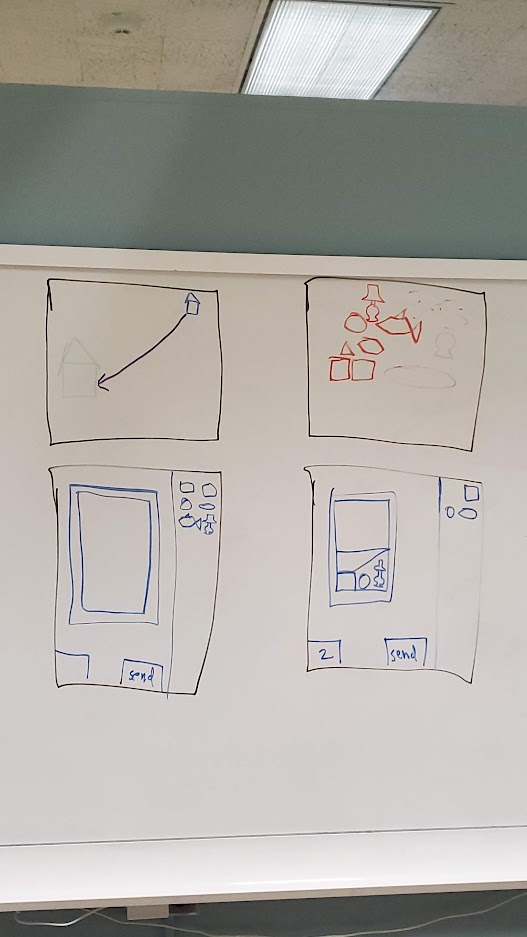 send
2
send